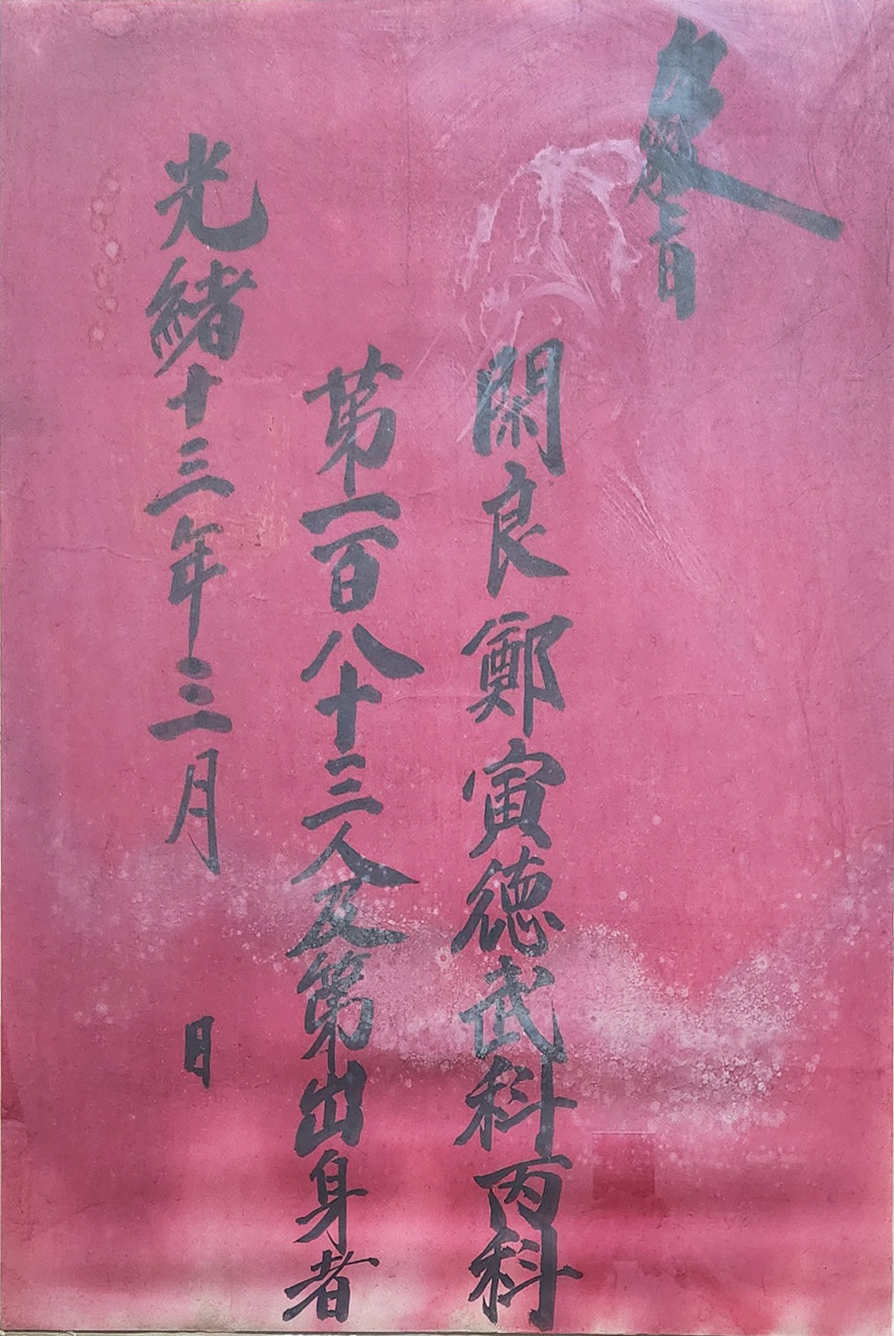 敎旨
閑良鄭寅德武科丙科
第一百八十三人及第出身者
光緖十三年三月 日